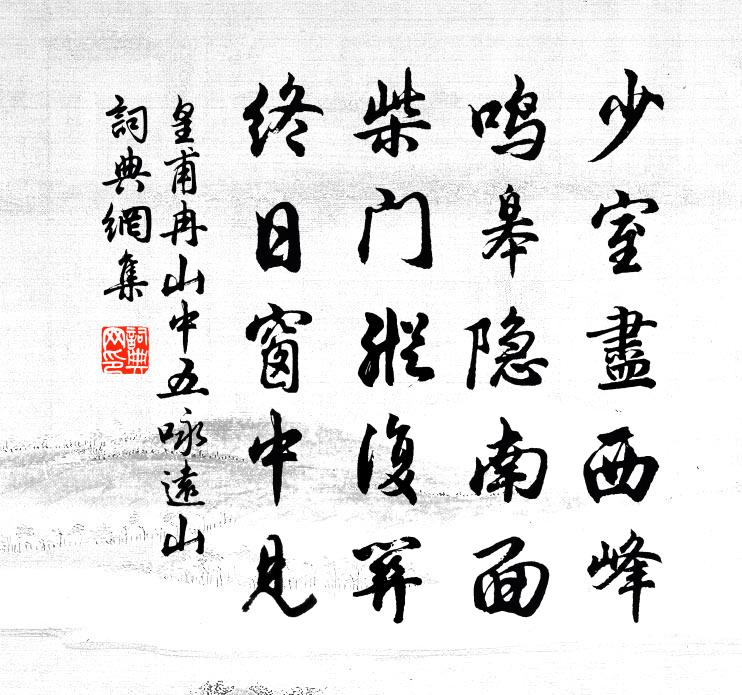 少室盡西峰
鸣皋隐南面
柴门縱復关
终日窗中見
皇甫冉山中五咏遠山
詞典網集
詞典网印